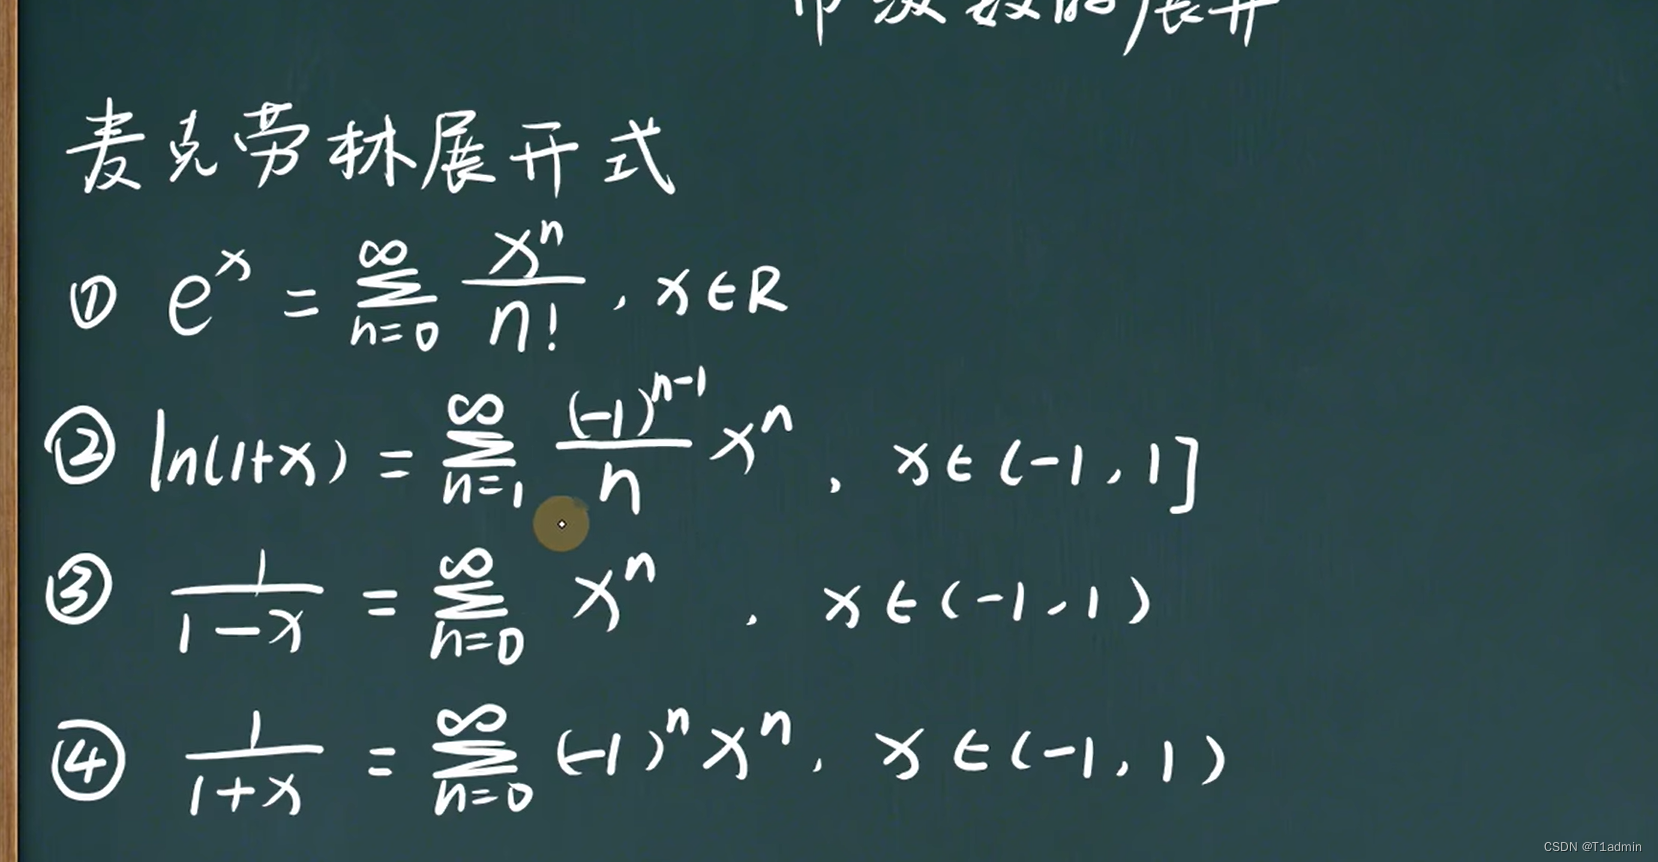 幂级数的展开
麦克劳林展开式
① e^x = ∑_{n=0}^{∞} x^n/n! , x∈R
② ln(1+x) = ∑_{n=1}^{∞} (-1)^{n-1}/n x^n , x∈(-1,1]
③ 1/(1-x) = ∑_{n=0}^{∞} x^n , x∈(-1,1)
④ 1/(1+x) = ∑_{n=0}^{∞} (-1)^n x^n , x∈(-1,1)
CSDN @T1admin